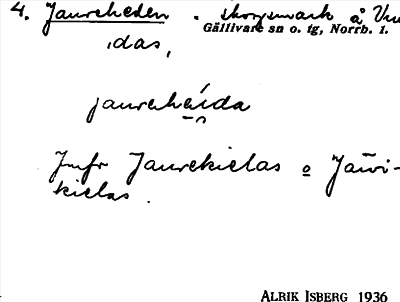 4. Jaureheden . skogsmark å
Gällivare sn o. tg, Norrb. l.
idas,
jaurehéida
Jmfr Jaurekielas o Jauri-
kielas.
ALRIK ISBERG 1936